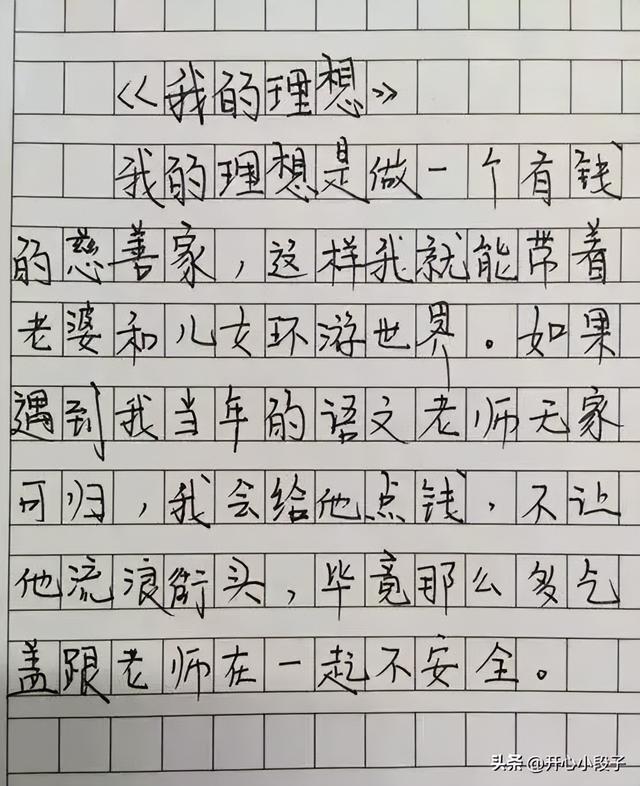 《我的理想》
我的理想是做一个有钱
的慈善家，这样我就能带着
老婆和儿女环游世界。如果
遇到我当年的语文老师无家
可归，我会给他点钱，不让
他流浪街头，毕竟那么多乞
盖跟老师在一起不安全。
头条 @开心小段子